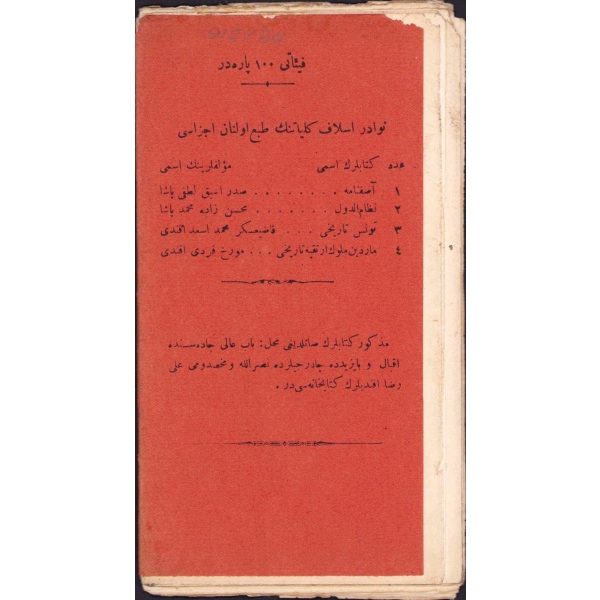 فیئاتی ١٠٠ پاره‌در
نوادر اسلاف کلیاتنك طبع اولنان اجزاسی
عدد کتابلرك اسمی مؤلفلرینك اسمی
١ آصفنامه . . . . . . . . صدر اسبق لطفی پاشا
٢ نظام‌الدول . . . . . . . محسن زاده محمد پاشا
٣ تونس تاریخی . . . قاضیعسکر محمد اسعد افندی
٤ ماردین ملوك ارتقیه تاریخی . . . مورخ فردی افندی
مذکور کتابلرك صاتلدیغی محل : باب عالی جاده‌سنده
اقبال و بایزیدده چادرجیلرده نصرالله و مخدومی علی
رضا افندیلرك کتابخانه‌سی در .